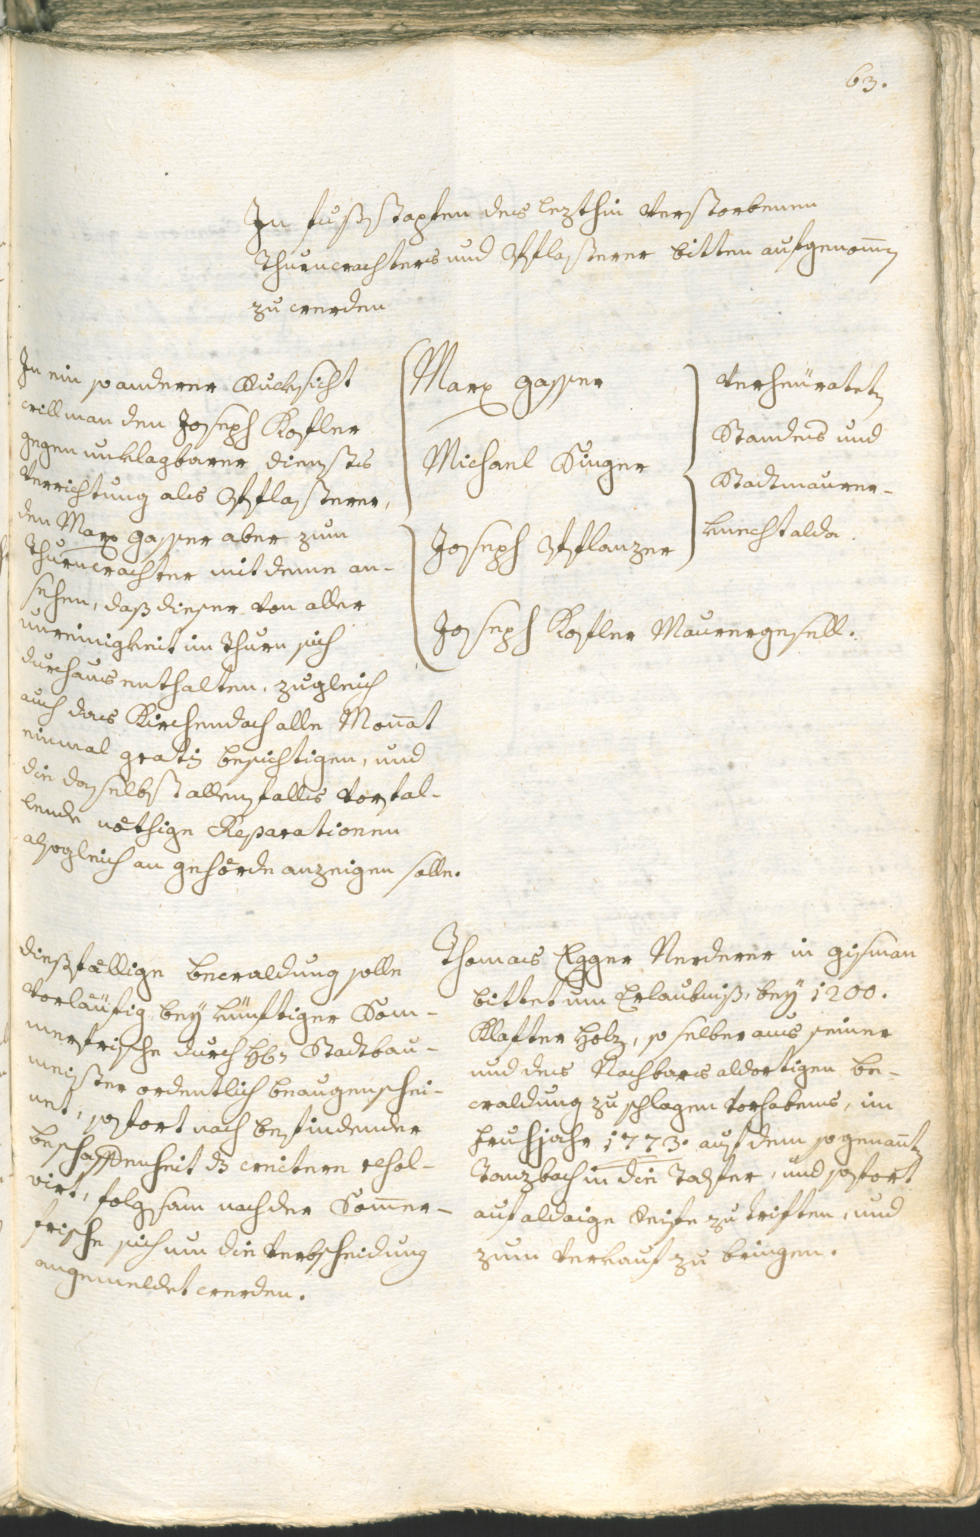 63.
In fußstapfen des lezthin verstorbenen
Thurnwachters und Pflasterer bitten aufgenom̅en
zu werden
In ein so anderer Rucksicht
will man den Joseph Kofler
gegen unklagbarer dienstes
Verrichtung als Pflasterer,
den Marx gasser aber zum
Thurnwachter mit deme an-
sehen, daß dieser von aller
unreinigkeit im Thurn sich
durchaus enthalten, zugleich
auch das Kirchendach alle Monat
einmal gratis besichtigen, und
die daselbst allenfalls vorfal-
lende nöthige Reparationen
alsogleich an gehörde anzeigen solle.
Marx gasser
Michael Singer
Joseph Pflanzer
Joseph Kofler Maurergesell.
verheüratete
Standes und
Stadtmaurer-
knecht alda.
dießfällige bewaldung solle
vorläufig bey künftiger Som-
merfrische durch Hh: Stadtbau-
meister ordentlich beaugenschei-
net, sofort nach befindender
beschaffenheit das weitere resol-
virt, folgsam nach der Som̅er-
frische sich um die Verbscheidung
angemeldet werden.
Thomas Egger Nerderer in gisman
bittet um Erlaubniß, bey 1200.
Klafter Holz, so selber aus seiner
und des Nachbars aldortigen be-
waldung zu schlagen vorhabens, im
fruhjahr 1773. auf dem sogenan̅ten
Tanzbach in die Talfer, und sofort
auf aldaige Reife zu triften, und
zum Verkauf zu bringen.